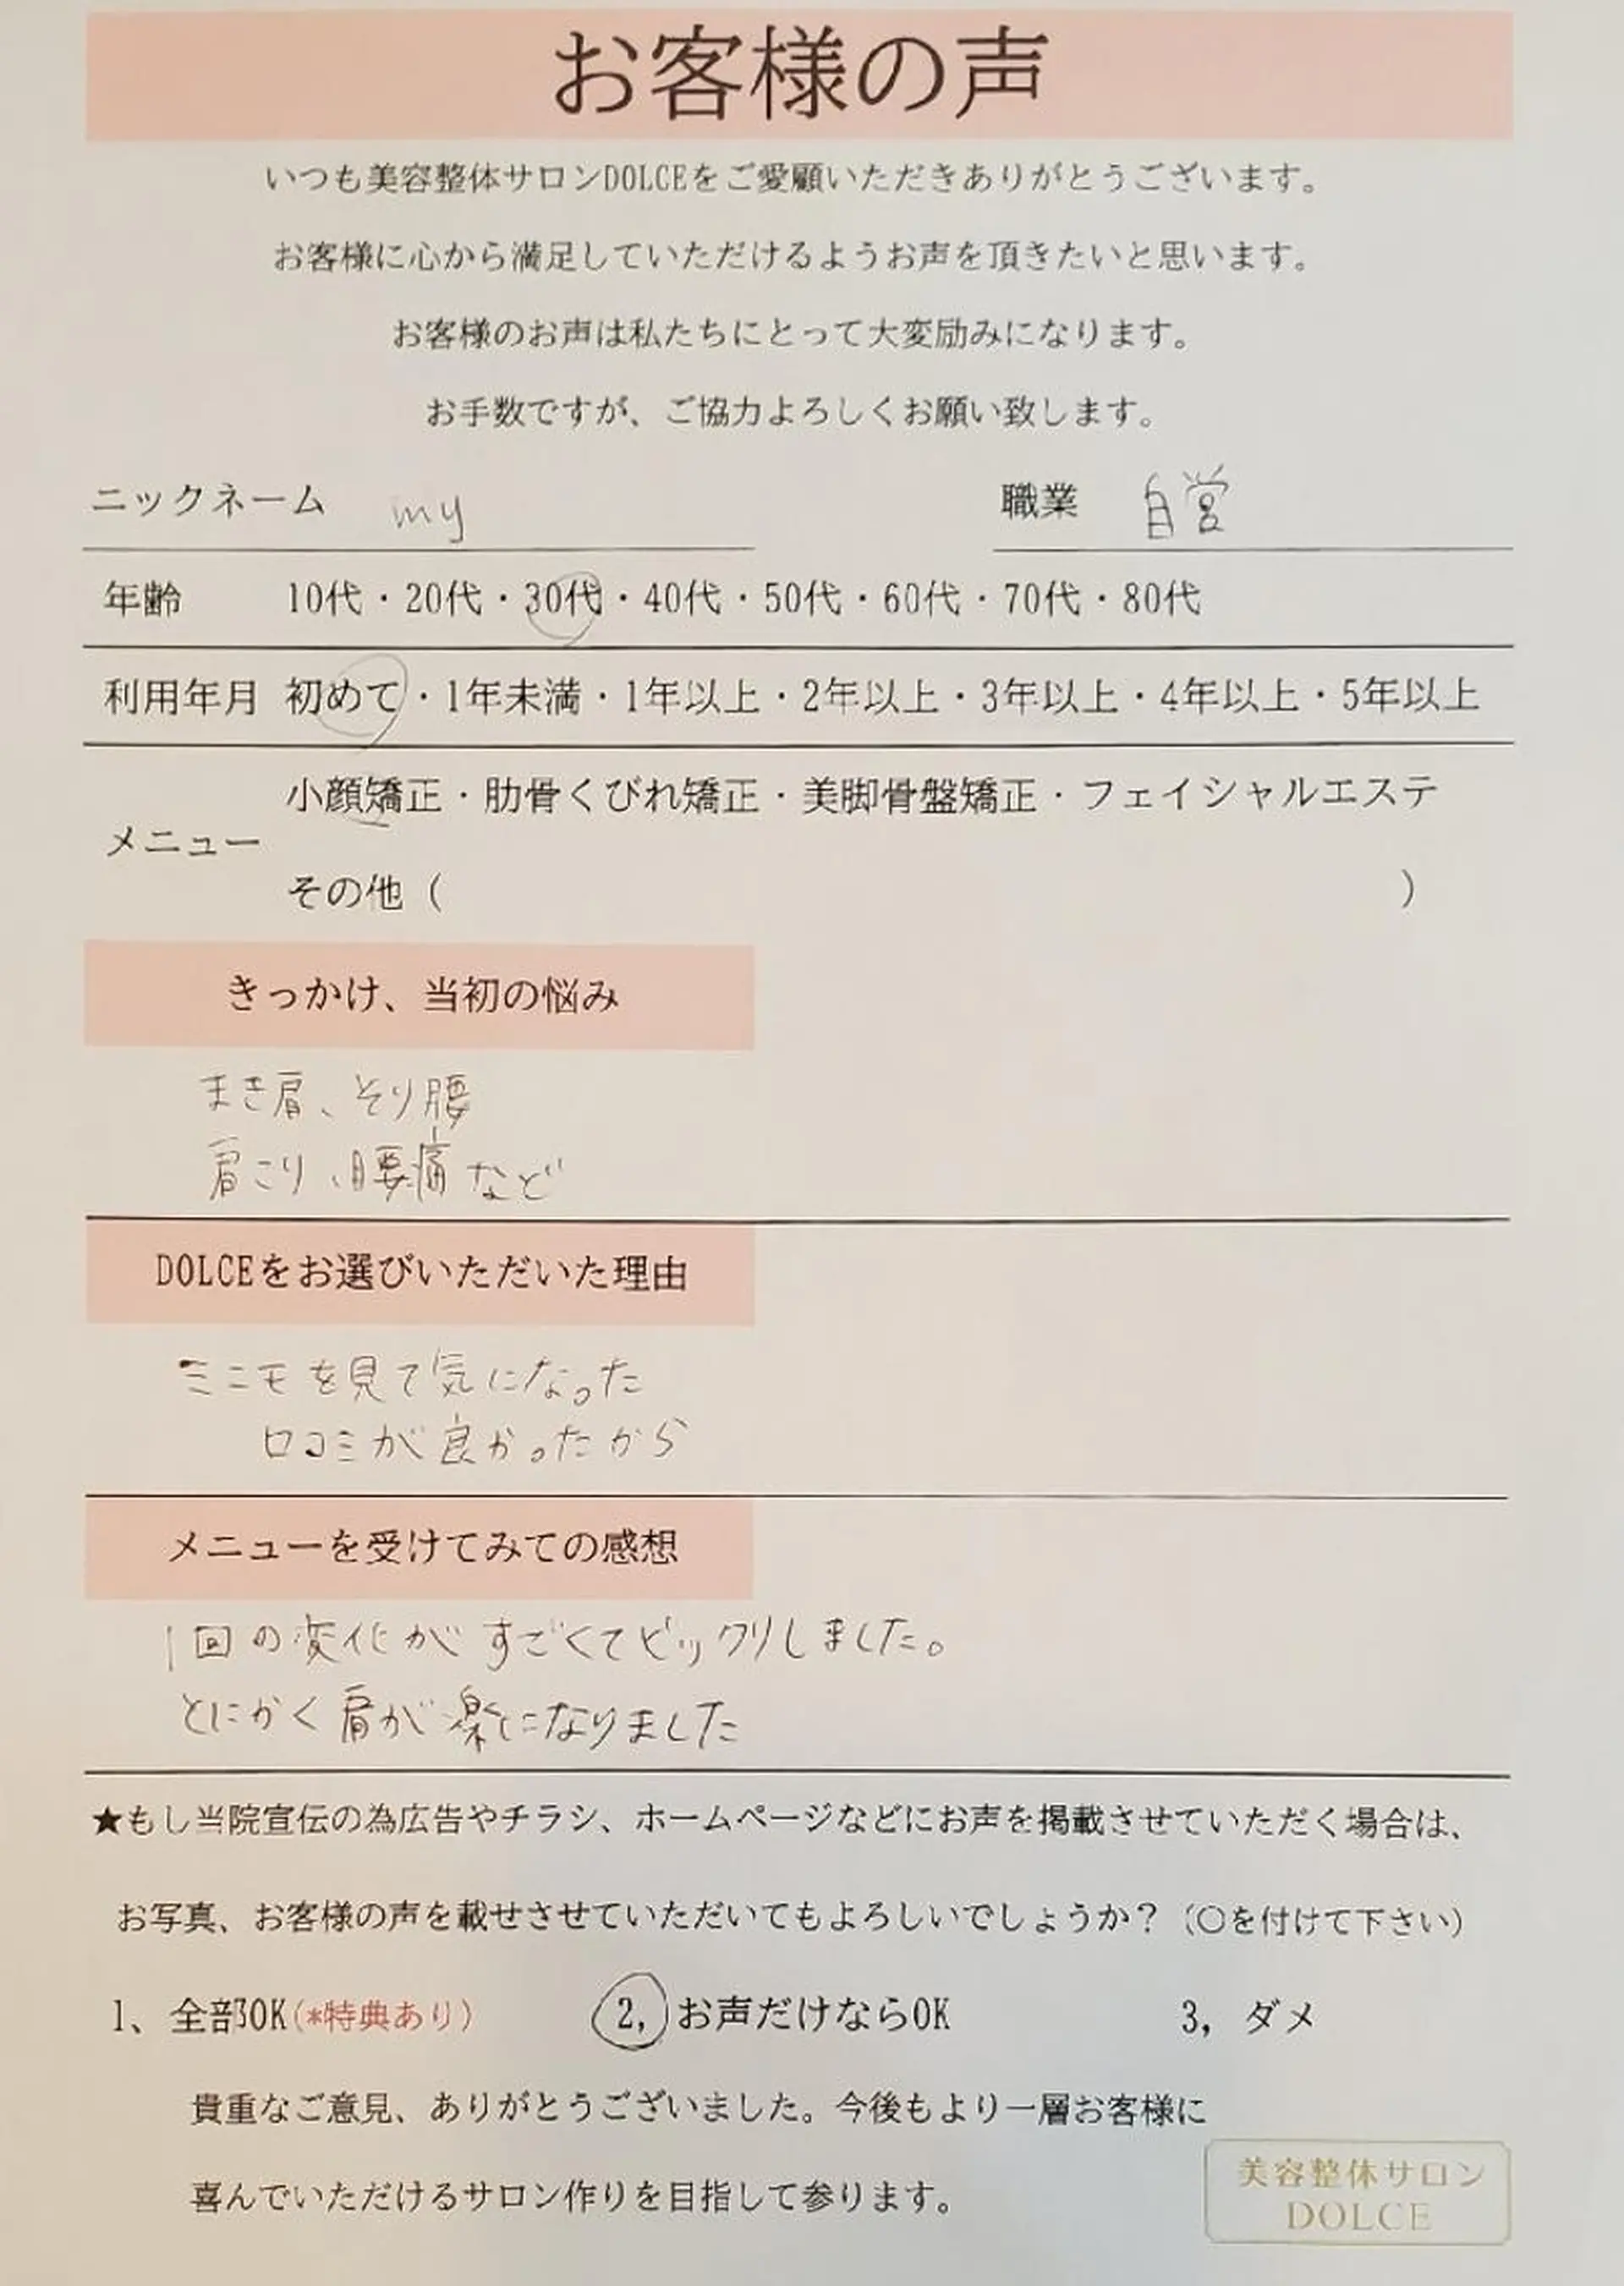 お客様の声
いつも美容整体サロンDOLCEをご愛顧いただきありがとうございます。
お客様に心から満足していただけるようお声を頂きたいと思います。
お客様のお声は私たちにとって大変励みになります。
お手数ですが、ご協力よろしくお願い致します。
ニックネーム my 職業 自営
年齢 10代・20代・30代・40代・50代・60代・70代・80代
利用年月 初めて・1年未満・1年以上・2年以上・3年以上・4年以上・5年以上
小顔矯正・肋骨くびれ矯正・美脚骨盤矯正・フェイシャルエステ
メニュー
その他（ ）
きっかけ、当初の悩み
まき肩、そり腰
肩こり、腰痛など
DOLCEをお選びいただいた理由
ミニモを見て気になった
口コミが良かったから
メニューを受けてみての感想
1回の変化がすごくてビックリしました。
とにかく肩が楽になりました
★もし当院宣伝の為広告やチラシ、ホームページなどにお声を掲載させていただく場合は、
お写真、お客様の声を載せさせていただいてもよろしいでしょうか？（〇を付けて下さい）
1、全部OK(*特典あり) 2,お声だけならOK 3,ダメ
貴重なご意見、ありがとうございました。今後もより一層お客様に
喜んでいただけるサロン作りを目指して参ります。
美容整体サロン
DOLCE